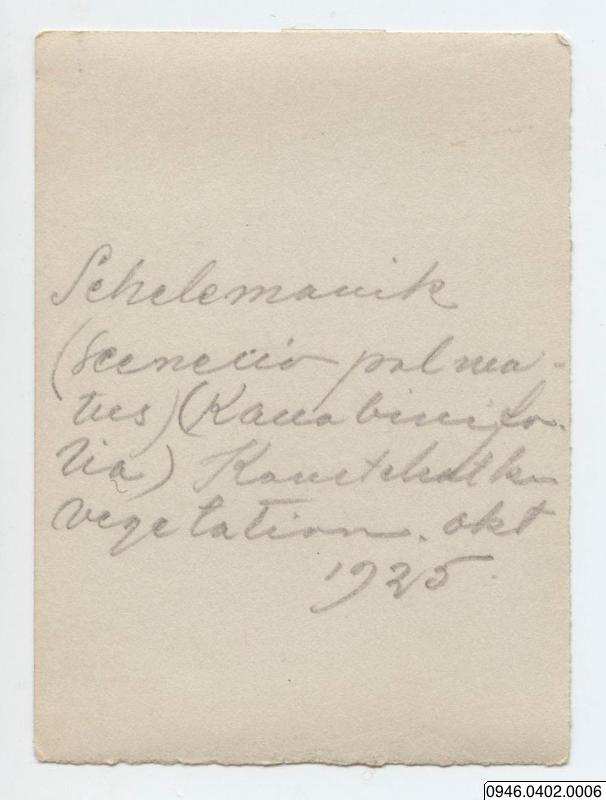 Schelemanik
(Scenecio palma-
tus) (Kannabinifo-
lia) Kamtchatka
vegetation. okt
1925.
0946.0402.0006